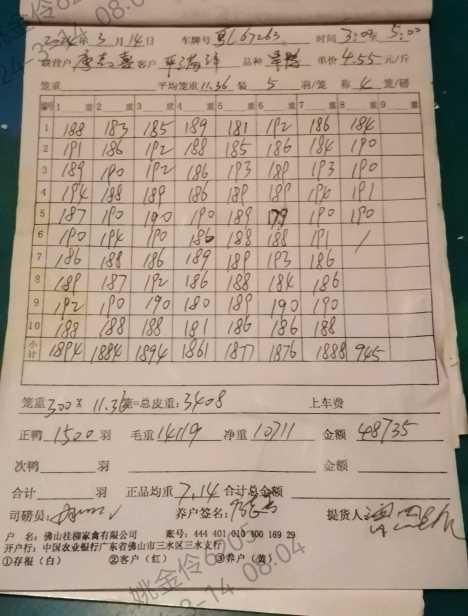 2024年3月14日 车牌号 粤L67263 时间 3:00 5:00
客户 品种 单价 4.55 元/斤
笼重 平均笼重 11.36 装 5 羽/笼 称 4 笼/磅
1 重 2 重 3 重 4 重 5 重 6 重 7 重 8 重 9 重
1 188 183 185 189 181 192 186 184
2 191 186 192 188 185 186 184 190
3 189 190 192 186 193 189 193 190
4 194 188 189 186 189 189 194 191
5 187 190 190 190 189 179 190 190
6 190 194 190 186 188 188 191 /
7 186 188 186 189 189 193 186
8 189 187 192 186 188 184 186
9 192 190 190 180 189 190 190
10 188 188 188 181 186 186 188
小计 1894 1884 1894 1861 1877 1876 1888 945
笼重 300 × 11.36 笼=总皮重: 3408 上车费
正鸭 1500 羽 毛重 14119 净重 10711 金额 48735
次鸭 羽 金额
合计 羽 正品均重 7.14 合计总金额
司磅员: 养户签名: 提货人:
户 名: 佛山桂柳家禽有限公司 账号: 444 401 010 400 169 29
开户行: 中国农业银行广东省佛山市三水区三水支行
①存根（白） ②客户（红） ③养户（黄）
姚金伶 6:05
3-14 08:04